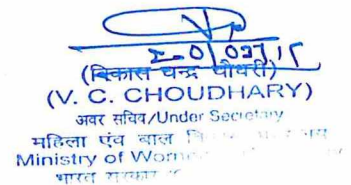 20/02/15
(विकास चन्द्र चौधरी)
(V. C. CHOUDHARY)
अवर सचिव/Under Secretary
महिला एंव बाल
Ministry of
भारत सरकार